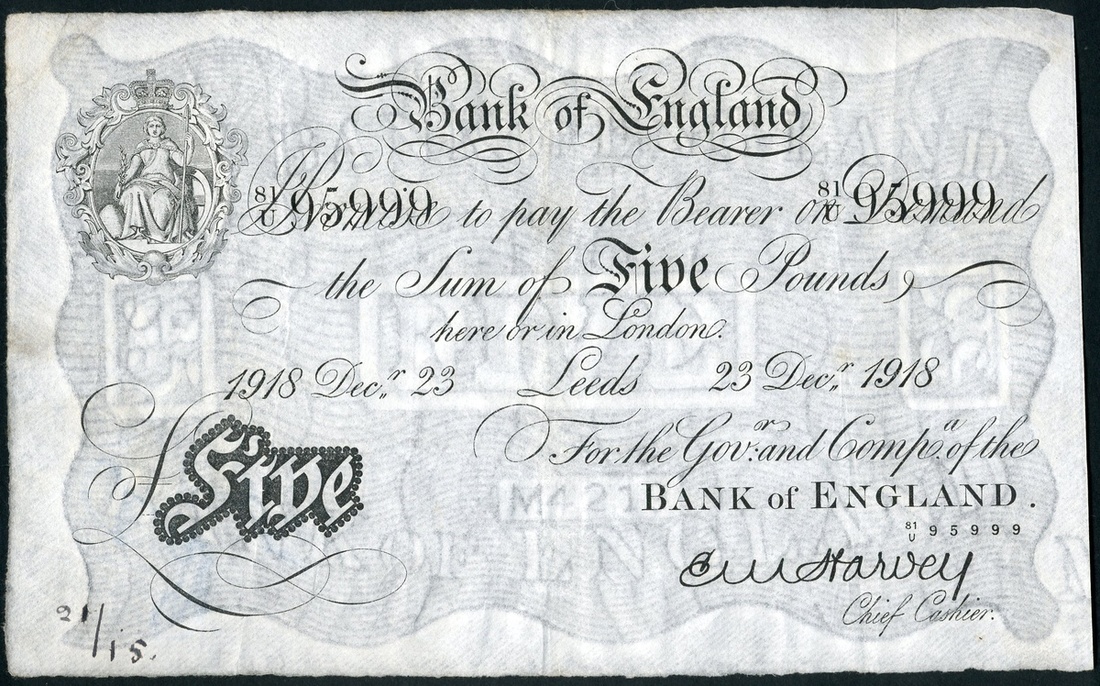 Bank of England
81/U 95999 I Promise to pay the Bearer on Demand 81/U 95999
the Sum of Five Pounds,
here or in London.
1918 Decr. 23 Leeds 23 Decr. 1918
For the Govr. and Compa. of the
BANK of ENGLAND.
£Five
81/U 95999
E M Harvey
Chief Cashier.
21/15.